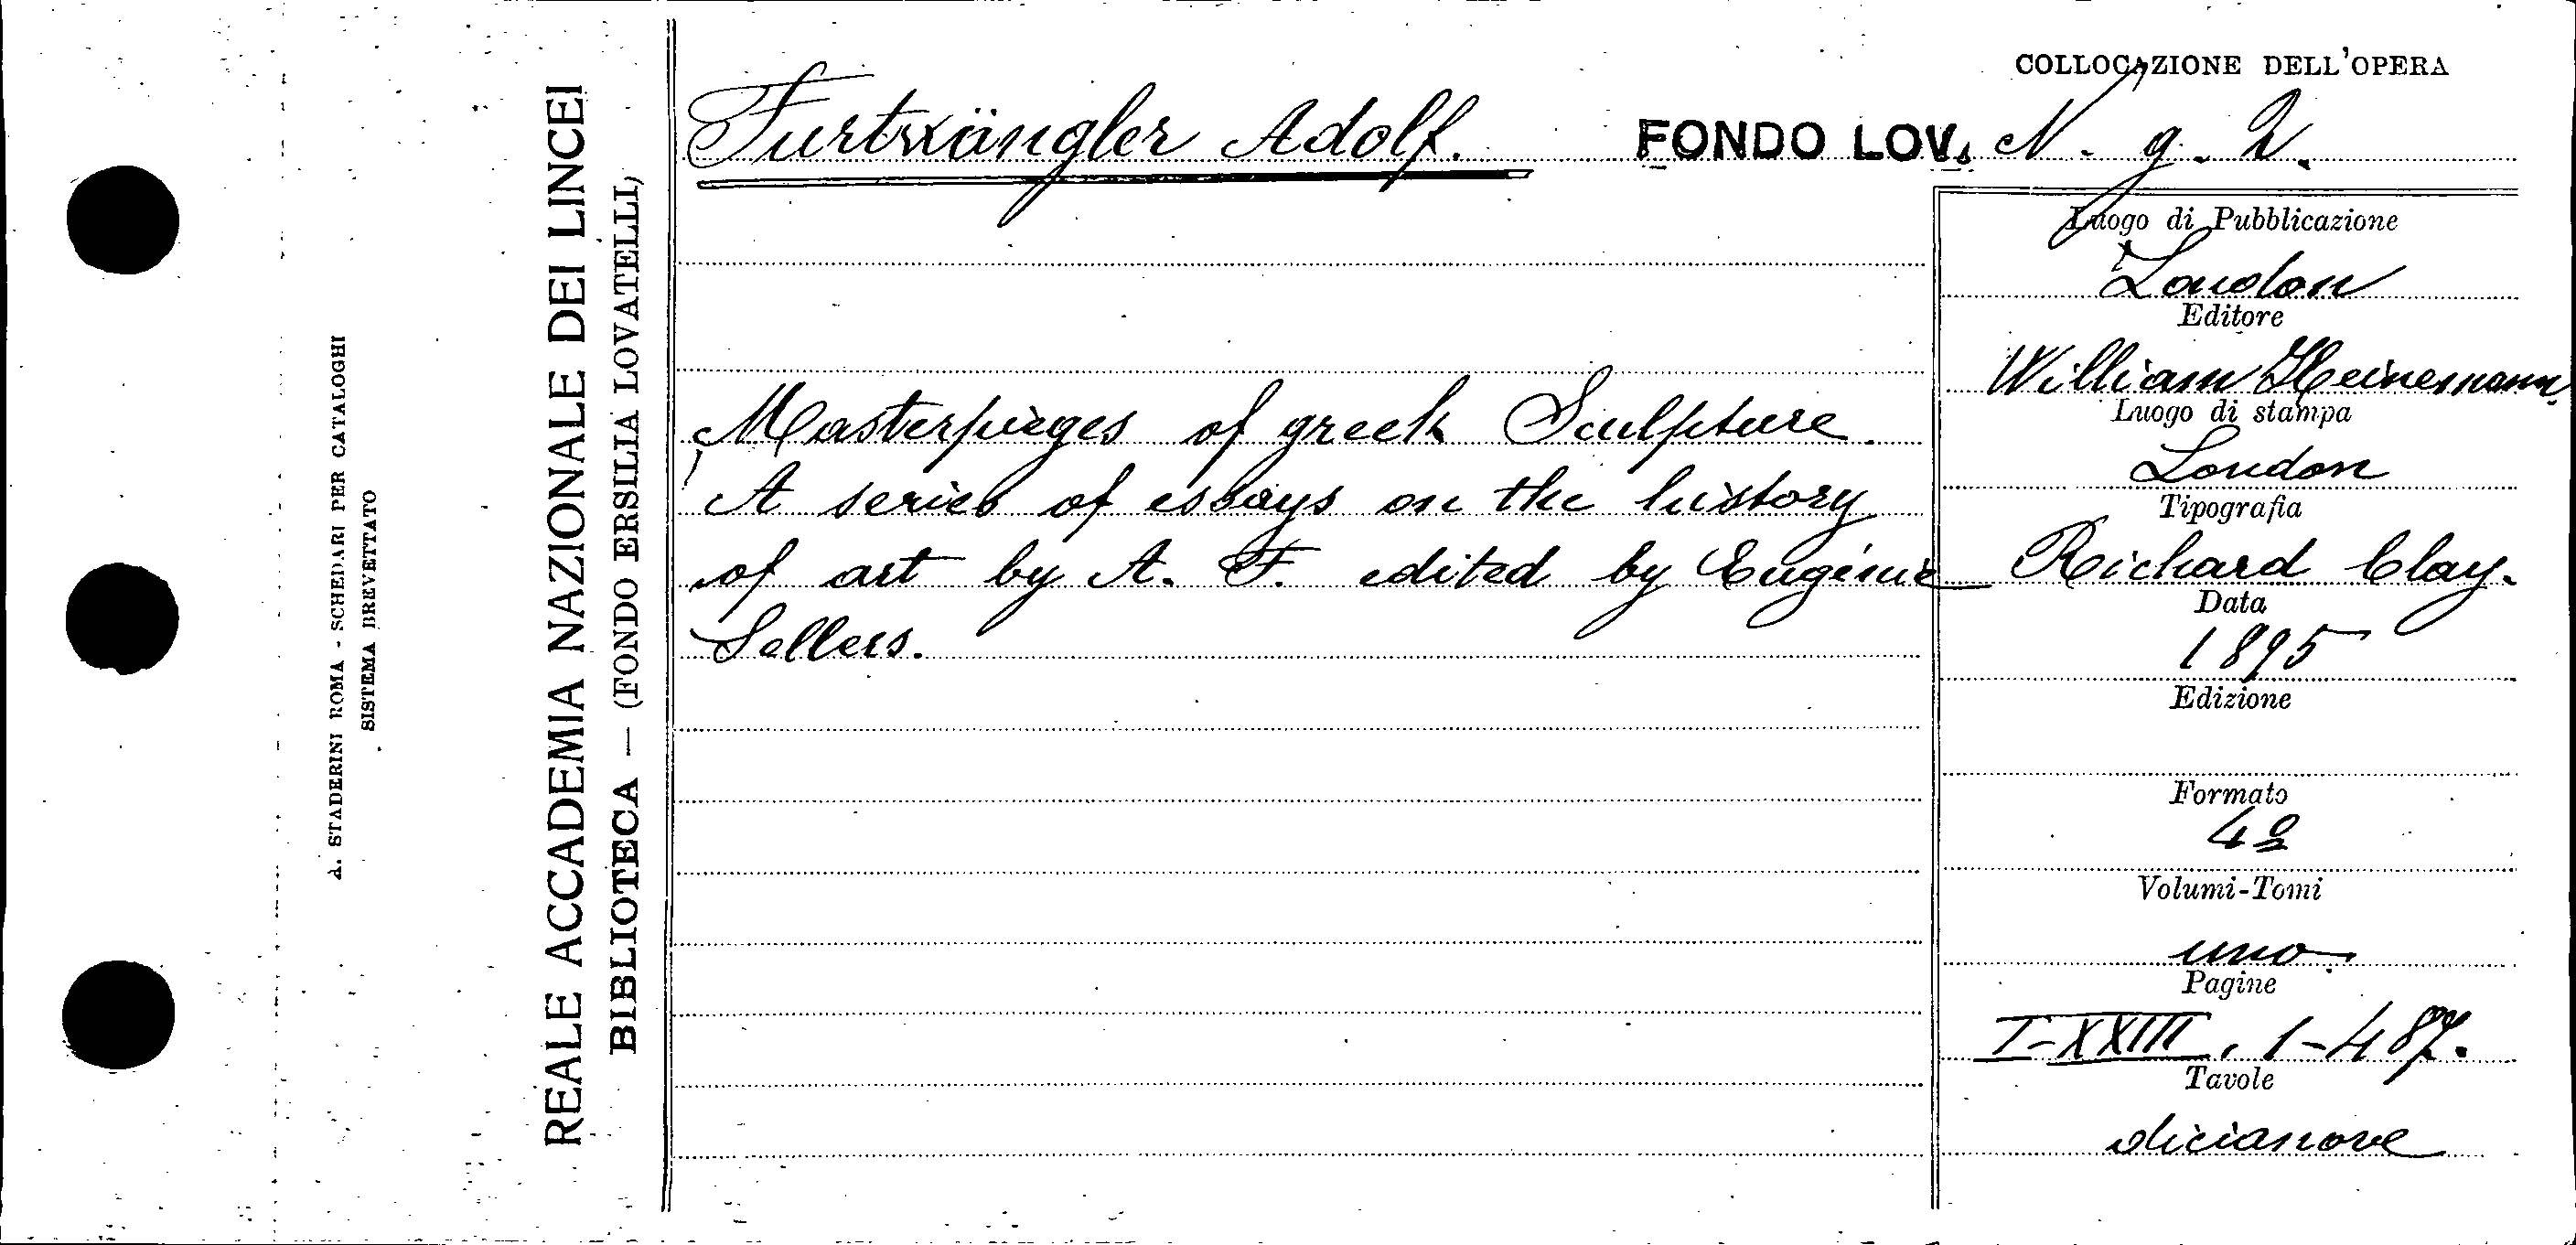 COLLOCAZIONE DELL'OPERA
Furtwängler Adolf. FONDO LOV. N. g. 2.
Masterpieges of greek Sculpture.
A series of essays on the history
of art by A. F. edited by Eugénie
Sellers.
Luogo di Pubblicazione
London
Editore
William Heinemann
Luogo di stampa
London
Tipografia
Richard Clay.
Data
1895
Edizione
Formato
4º
Volumi-Tomi
uno.
Pagine
I-XXIII, 1-487.
Tavole
dicianove
REALE ACCADEMIA NAZIONALE DEI LINCEI
BIBLIOTECA — (FONDO ERSILIA LOVATELLI)
A. STADERINI ROMA - SCHEDARI PER CATALOGHI
SISTEMA BREVETTATO